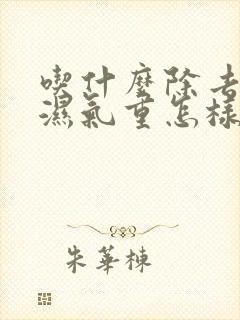 喫什麼除去
濕氣重怎樣
朱華棟